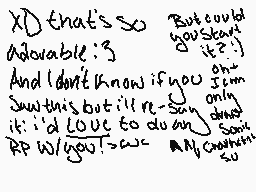 XD that's so
adorable :3
And I don't know if you
saw this but ill re-say
it: i'd LOVE to do an
RP w/ you! >w<
But could
you start
it? :)
oh +
I can
only
draw
Sonic